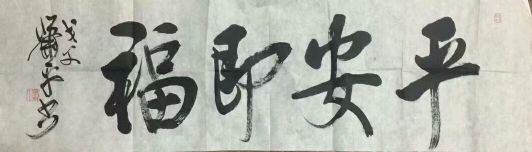 平安即福
戊子